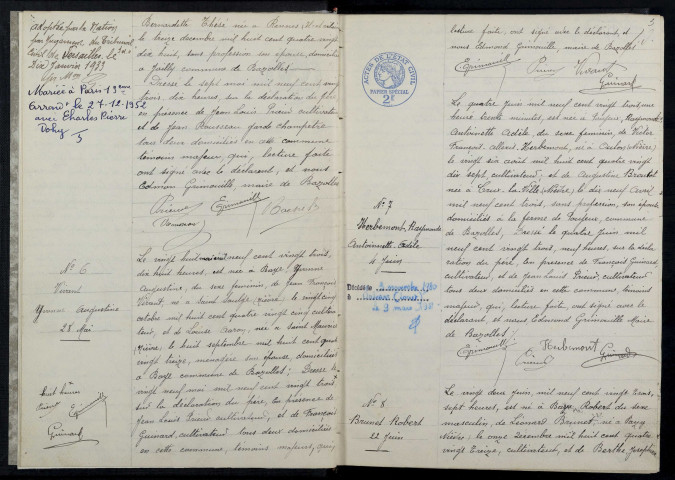 adoptée par la Nation
par jugement du Tribunal
civil de Versailles le
Dix Janvier 1922
Mariée à Paris 13ème
arrondt le 27.12.1952
avec Charles Pierre
Dohy
Bernadette Thésé née à Rennes
le treize décembre mil huit cent quatre vingt
dix huit, sans profession son épouse, domiciliés
à Juilly commune de Bazolles
Dressé le sept mai mil neuf cent vingt trois
dix heures, sur la déclaration du père
en présence de Jean Louis Pricni cultivateur
et de Jean Rousseau garde champêtre
tous deux domiciliés en cette commune
témoins majeurs qui, lecture faite
ont signé avec le déclarant, et nous
Edmond Guinouille, maire de Bazolles
Rousseau
N° 6
Vivant
Yvonne Augustine
28 Mai
Le vingt huit mai mil neuf cent vingt trois,
dix huit heures, est née à Baye Yvonne
Augustine, du sexe féminin, de Jean François
Vivant, né à Saint Saulge (Nièvre) le vingt cinq
octobre mil huit cent quatre vingt cinq cultiva-
teur, et de Louise Baron, née à Saint Maurice
Nièvre, le huit septembre mil huit cent quatre
vingt treize, ménagère son épouse domiciliés
à Baye commune de Bazolles; Dressé le
vingt neuf mai mil neuf cent vingt trois
huit heures
sur la déclaration du père, en présence de
Jean Louis Pricni cultivateur, et de François
Guinard, cultivateur tous deux domiciliés
en cette commune, témoins majeurs, qui,
Guinard
3
lecture faite, ont signé avec le déclarant, et
nous Edmond Guinouille, maire de Bazolles
Guinouille Vivant
Guinard
ACTES DE L'ÉTAT CIVIL
PAPIER SPÉCIAL
2F
N° 7
Herbemont, Raymonde
Antoinette Adèle
4 Juin
Le quatre juin mil neuf cent vingt trois une
heure trente minutes, est née à Poufeux, Raymonde
Antoinette Adèle, du sexe féminin, de Victor
François Albert Herbemont, né à Ourlon (Nièvre)
le vingt six août mil huit cent quatre vingt
dix sept, cultivateur, et de Augustine
née à Crux la Ville (Nièvre) le dix neuf avril
mil neuf cent trois, sans profession, son épouse
domiciliés à la ferme de Poufeux, commune
de Bazolles, Dressé le quatre juin mil
neuf cent vingt trois, neuf heures, sur la décla-
ration du père, en présence de François Guinard,
cultivateur, et de Jean Louis Pricni, cultivateur
tous deux domiciliés en cette commune, témoins
majeurs, qui, lecture faite, ont signé avec le
déclarant, et nous Edmond Guinouille Maire
de Bazolles
Guinouille Herbemont Guinard
Décédée
N° 8
Brunet Robert
22 Juin
Le vingt deux juin, mil neuf cent vingt trois,
sept heures, est né à Baye, Robert du sexe
masculin, de Léonard Brunet, né à
Nièvre, le onze Décembre mil huit cent quatre
vingt treize, cultivateur, et de Berthe Joséphine